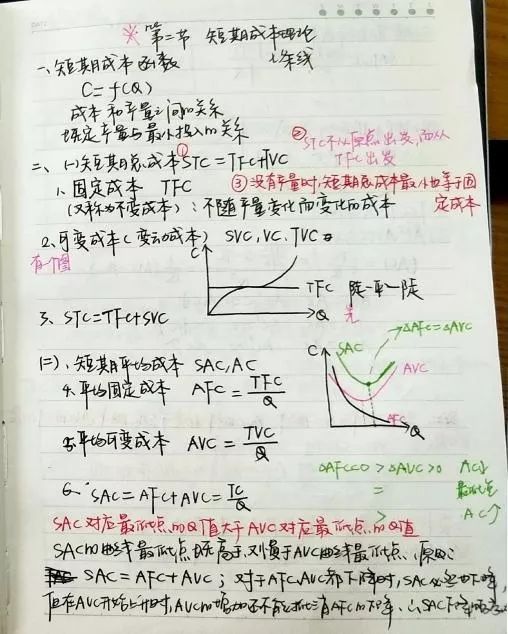 ※ 第二节 短期成本理论
七条线
一、短期成本函数
C=f(Q)
成本和产量之间的关系
既定产量与最小投入的关系
② STC不从原点出发,而从
TFC出发
二、(一)短期总成本① STC=TFC+TVC
1、固定成本 TFC
③ 没有产量时,短期总成本最小也等于固
定成本
(又称为不变成本):不随产量变化而变化的成本
2、可变成本(变动成本) SVC,VC,TVC
有个图
C
TFC 陡—平—陡
Q
先
3、STC=TFC+SVC
(二)、短期平均成本 SAC,AC
C SAC →△AFC=△AVC
AVC
AFC Q
4、平均固定成本 AFC=TFC/Q
5、平均可变成本 AVC=TVC/Q
△AFC<0 > △AVC>0 AC↓
= 最低点
> AC↑
6、SAC=AFC+AVC=TC/Q
SAC对应最低点的Q值大于AVC对应最低点的Q值
SAC的曲线最低点既高于,又慢于AVC曲线最低点、原因:
SAC=AFC+AVC;对于AFC、AVC都下降时,SAC必定也下降,
但在AVC开始上升时,AVC的增加还不能抵消AFC的下降,∴SAC下降